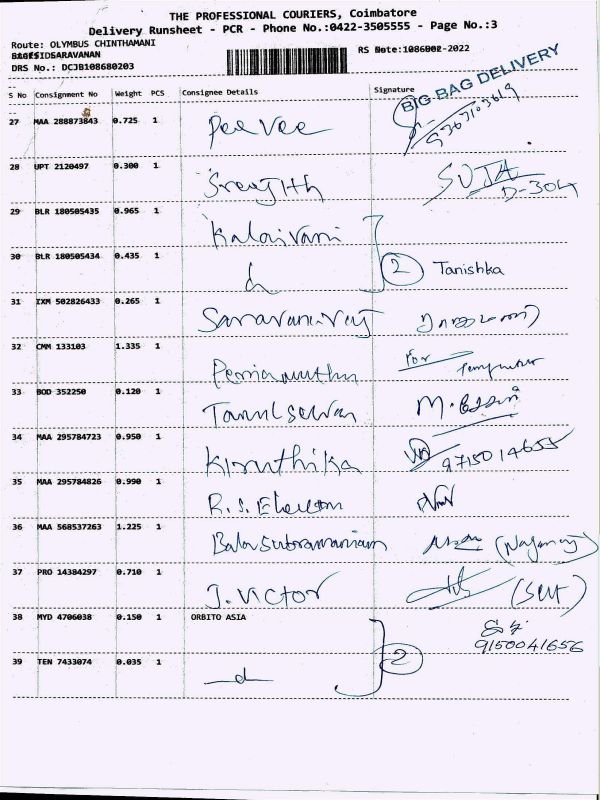 THE PROFESSIONAL COURIERS, Coimbatore
Delivery Runsheet - PCR - Phone No.:0422-3505555 - Page No.:3
Route: OLYMBUS CHINTHAMANI
SARAVANAN
DRS No.: DCJB108680203
RS Date: -2022
BIG BAG DELIVERY
S No Consignment No Weight PCS Consignee Details Signature
27 MAA 288873843 0.725 1 Pee Vee
28 UPT 2120497 0.300 1 Sreejith SUJA D-304
29 BLR 180505435 0.965 1 Kalaivani
30 BLR 180505434 0.435 1 2 Tanishka
31 IXM 502826433 0.265 1 Saravanaraj
32 CMM 133103 1.335 1 for
33 BOD 352250 0.120 1 Tamilselvan
34 MAA 295784723 0.950 1 Kiruthika 9715014655
35 MAA 295784826 0.990 1 R.S.
36 MAA 568537263 1.225 1 Balasubramaniam (Nagaraj)
37 PRO 14384297 0.710 1 J. Victor (Self)
38 MYD 4706038 0.150 1 ORBITO ASIA
9150041656
39 TEN 7433074 0.035 1 2